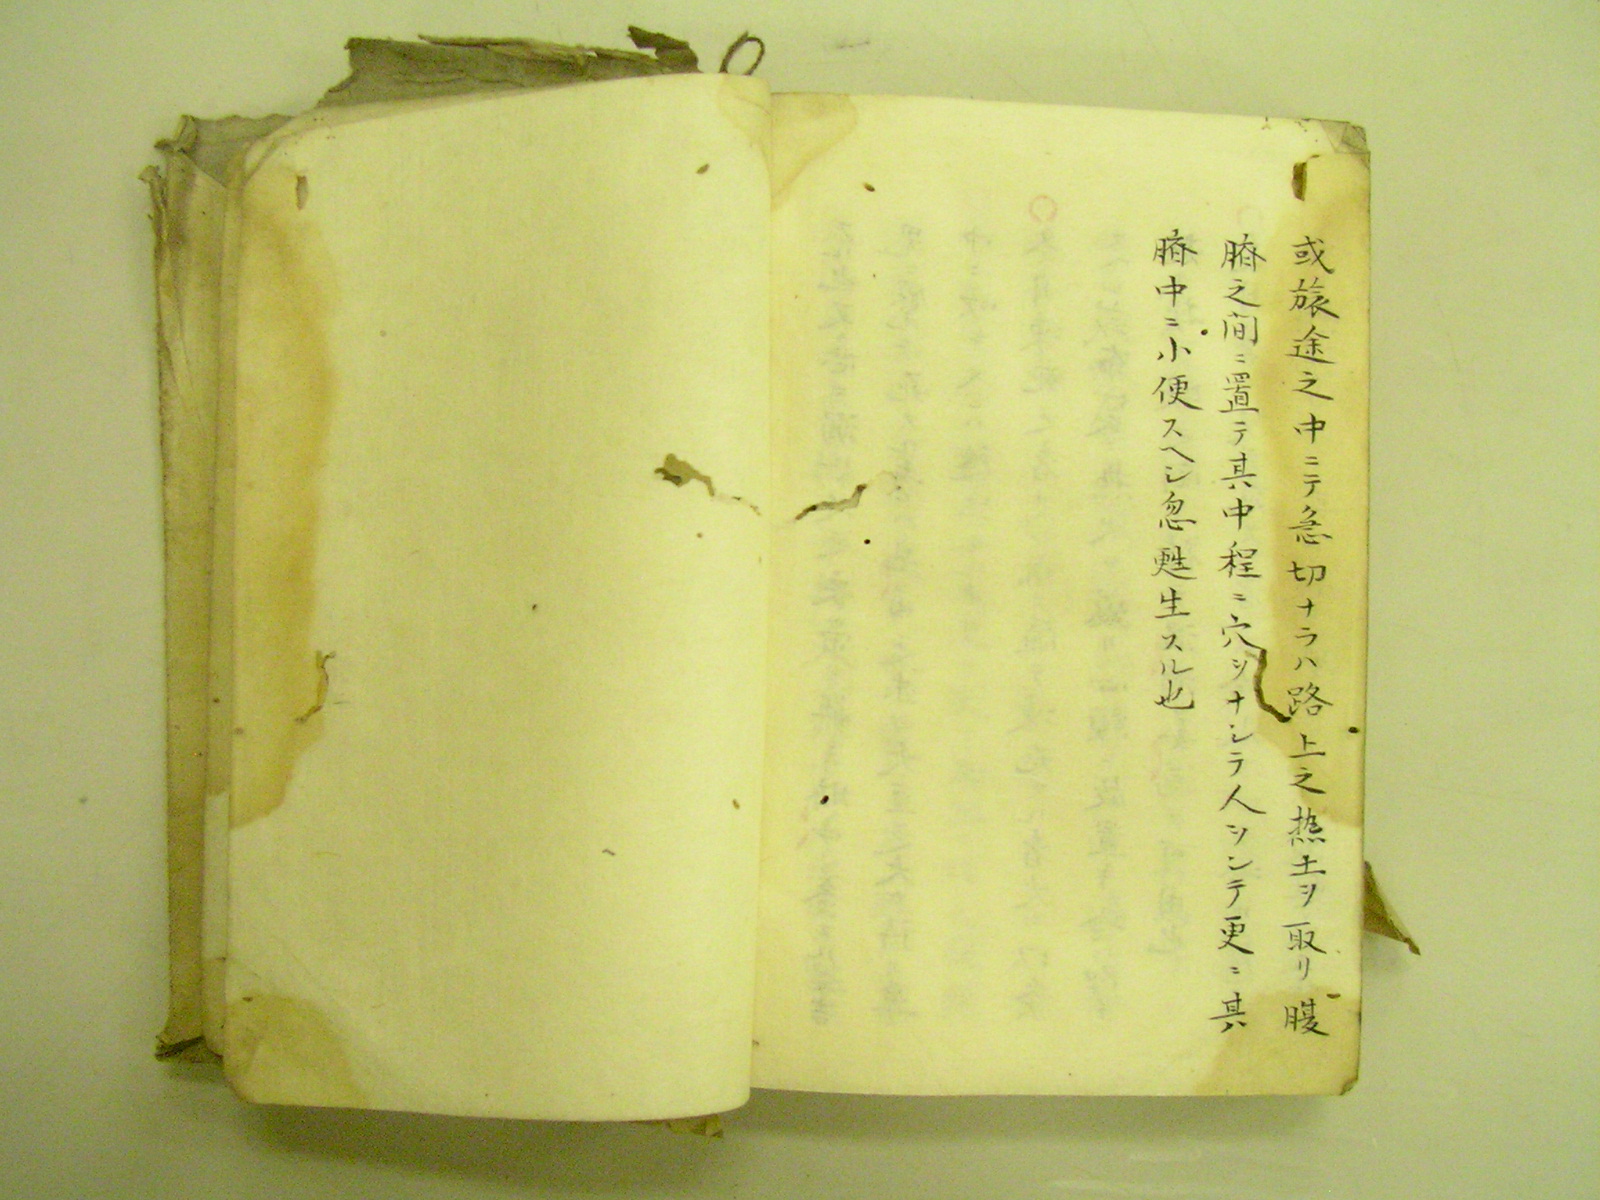 或旅途之中ニテ急切ナラハ路上之熱土ヲ取リ腹
臍之間ニ置テ其中程ニ穴ヲナシテ人ヲシテ更ニ其
臍中ニ小便スヘシ忽甦生スル也